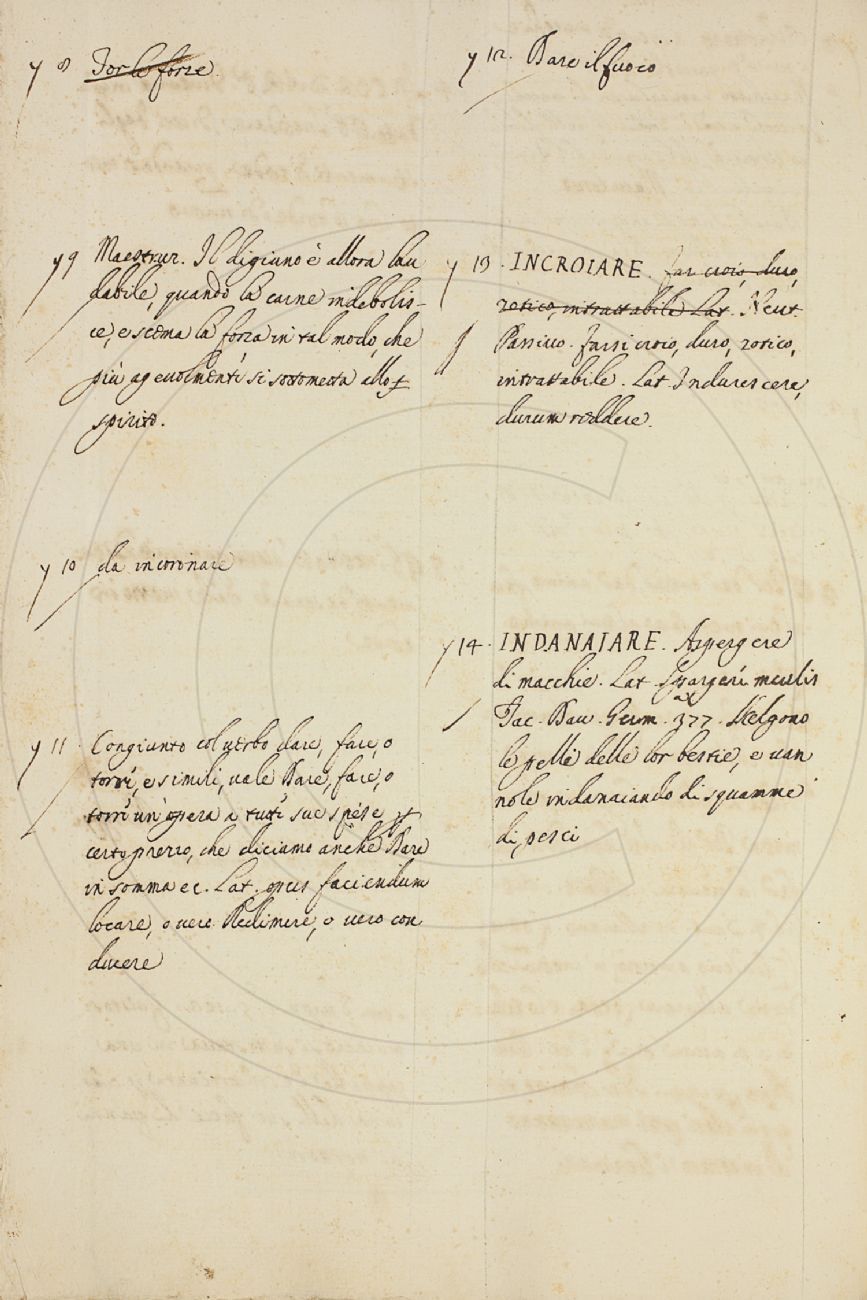 y 8 Tor le forze.
y 9 Maestruz. Il digiuno è allora lau
dabile, quando la carne indebolis-
ce, e scema la forza in tal modo, che
più agevolmenti si sottometta allo
spirito.
y 10 da incoronare
y 11 Congiunto col verbo dare, fare, o
torri, e simili, vale Dare, fare, o
torri un'opera a tutti sue spese
certo prezzo, che diciamo anche Dare
in somma ec. Lat. opus faciendum
locare, o vero Redimere, o vero con
ducere
y 12. Dare il fuoco
y 13. INCROIARE. far croio, duro,
zotico, intrattabile Lat. Neut
Passivo. farsi croio, duro, zotico,
intrattabile. Lat. Indurescere,
durum reddere.
y 14. INDANAIARE. Aspergere
di macchie. Lat. Spargeri maculis
Fac. Dav. Germ. 377. Scelgono
le pelli delle lor bestie, e van
nole indanaiando di squamme
di pesci